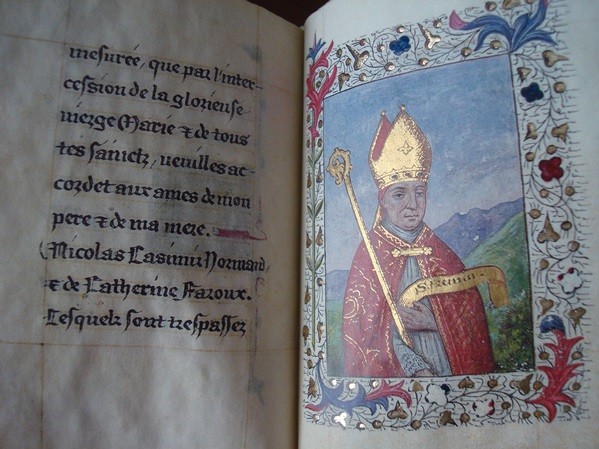 mesurée, que par l'inter-
cession de la glorieuse
vierge Marie & de tous
tes sainctz, veuilles ac-
corder aux ames de mon
pere & de ma mere.
Nicolas Casimir Normand,
& de Catherine Faroux.
Lesquelz sont trespassez